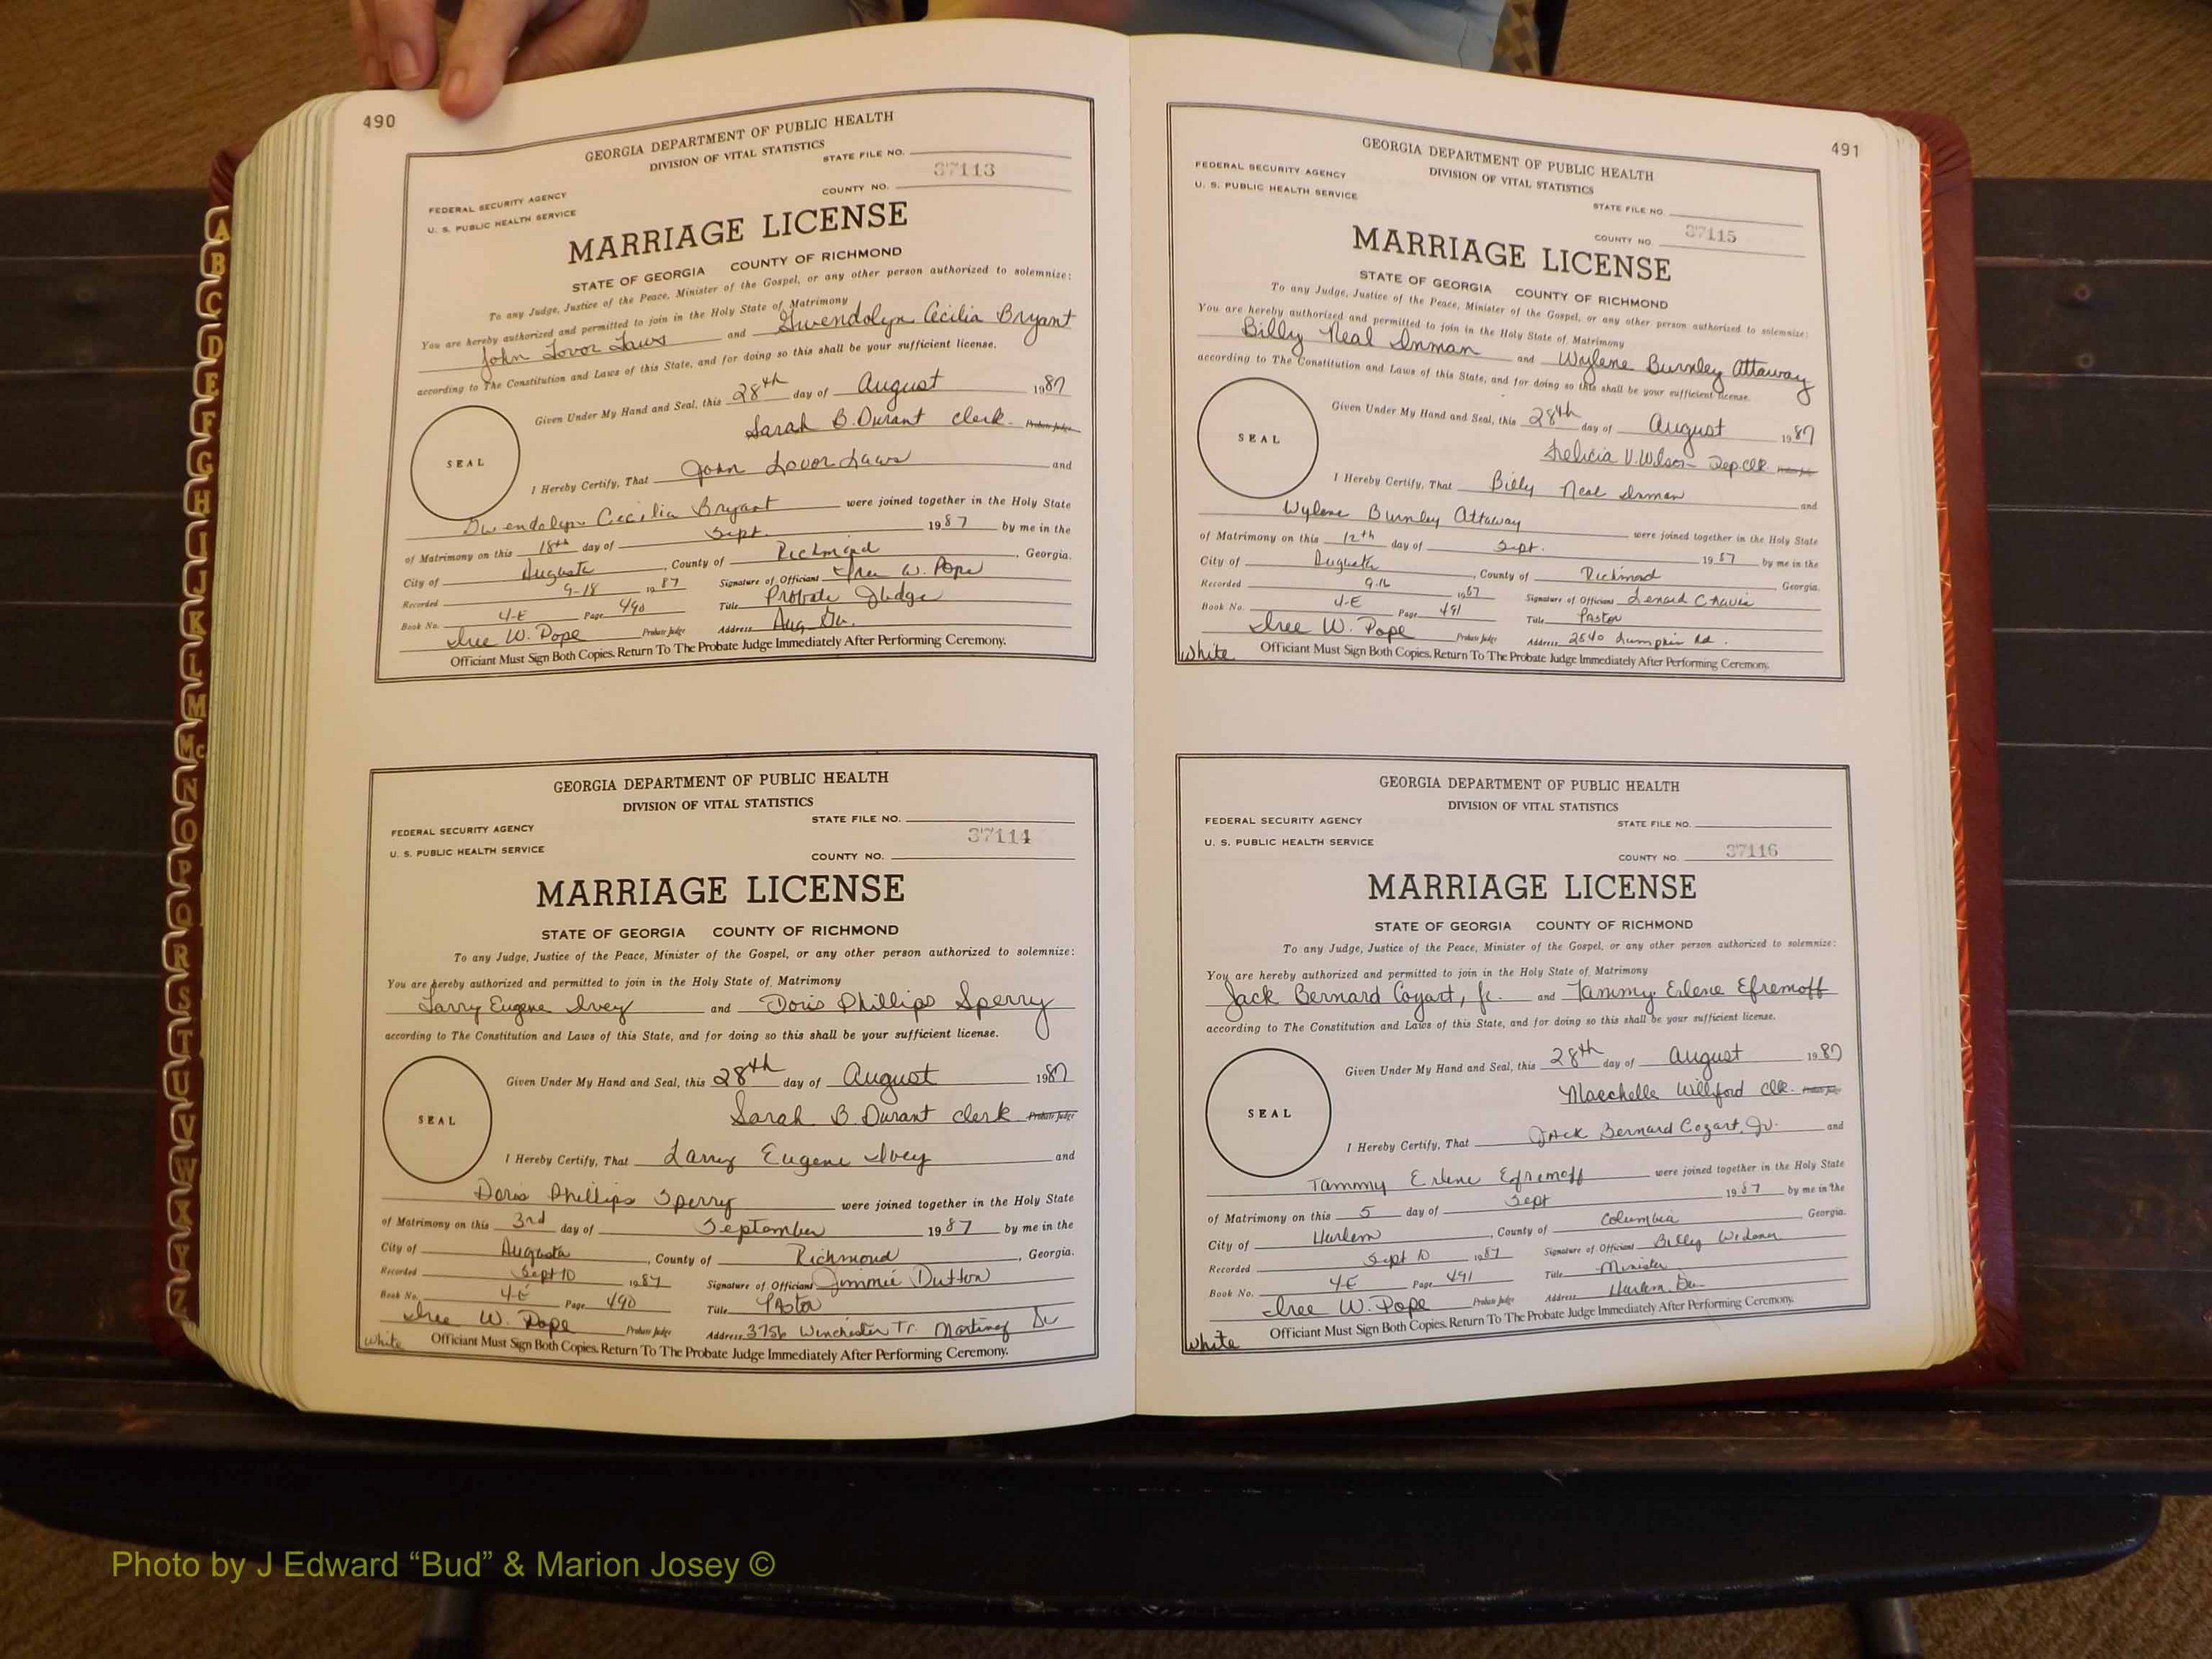 490
GEORGIA DEPARTMENT OF PUBLIC HEALTH
DIVISION OF VITAL STATISTICS
STATE FILE NO.
37113
FEDERAL SECURITY AGENCY
COUNTY NO.
U. S. PUBLIC HEALTH SERVICE
MARRIAGE LICENSE
STATE OF GEORGIA COUNTY OF RICHMOND
To any Judge, Justice of the Peace, Minister of the Gospel, or any other person authorized to solemnize:
You are hereby authorized and permitted to join in the Holy State of Matrimony
John Lovor Laws and Gwendolyn Cecilia Bryant
according to The Constitution and Laws of this State, and for doing so this shall be your sufficient license.
Given Under My Hand and Seal, this 28th day of August 1987
Sarah B. Durant clerk. Probate Judge
SEAL
I Hereby Certify, That John Lovor Laws and
Gwendolyn Cecilia Bryant were joined together in the Holy State
of Matrimony on this 18th day of Sept. 1987 by me in the
City of Augusta, County of Richmond, Georgia.
Recorded 9-18 1987 Signature of Officiant W. Pope
Book No. 4-E Page 490 Title Probate Judge
W. Pope Probate Judge Address Aug. Ga.
Officiant Must Sign Both Copies. Return To The Probate Judge Immediately After Performing Ceremony.
GEORGIA DEPARTMENT OF PUBLIC HEALTH
DIVISION OF VITAL STATISTICS
STATE FILE NO.
FEDERAL SECURITY AGENCY
37114
U. S. PUBLIC HEALTH SERVICE
COUNTY NO.
MARRIAGE LICENSE
STATE OF GEORGIA COUNTY OF RICHMOND
To any Judge, Justice of the Peace, Minister of the Gospel, or any other person authorized to solemnize:
You are hereby authorized and permitted to join in the Holy State of Matrimony
Larry Eugene Ivey and Doris Phillips Sperry
according to The Constitution and Laws of this State, and for doing so this shall be your sufficient license.
Given Under My Hand and Seal, this 28th day of August 1987
Sarah B. Durant clerk Probate Judge
SEAL
I Hereby Certify, That Larry Eugene Ivey and
Doris Phillips Sperry were joined together in the Holy State
of Matrimony on this 3rd day of September 1987 by me in the
City of Augusta, County of Richmond, Georgia.
Recorded Sept 10 1987 Signature of Officiant Jimmie Dutton
Book No. 4-E Page 490 Title Pastor
W. Pope Probate Judge Address 3756 Winchester Tr. Martinez Ga
White Officiant Must Sign Both Copies. Return To The Probate Judge Immediately After Performing Ceremony.
491
GEORGIA DEPARTMENT OF PUBLIC HEALTH
DIVISION OF VITAL STATISTICS
FEDERAL SECURITY AGENCY
U. S. PUBLIC HEALTH SERVICE
STATE FILE NO.
37115
COUNTY NO.
MARRIAGE LICENSE
STATE OF GEORGIA COUNTY OF RICHMOND
To any Judge, Justice of the Peace, Minister of the Gospel, or any other person authorized to solemnize:
You are hereby authorized and permitted to join in the Holy State of Matrimony
Billy Neal Inman and Wylene Burnley Attaway
according to The Constitution and Laws of this State, and for doing so this shall be your sufficient license.
Given Under My Hand and Seal, this 28th day of August 1987
Felicia V. Wilson Dep Clk Probate Judge
SEAL
I Hereby Certify, That Billy Neal Inman and
Wylene Burnley Attaway were joined together in the Holy State
of Matrimony on this 12th day of Sept. 1987 by me in the
City of Augusta, County of Richmond Georgia.
Recorded 9-16 1987 Signature of Officiant Lenard
Book No. 4-E Page 491 Title Pastor
W. Pope Probate Judge Address 2540 Lumpkin Rd.
White Officiant Must Sign Both Copies. Return To The Probate Judge Immediately After Performing Ceremony.
GEORGIA DEPARTMENT OF PUBLIC HEALTH
DIVISION OF VITAL STATISTICS
FEDERAL SECURITY AGENCY
STATE FILE NO.
U. S. PUBLIC HEALTH SERVICE
37116
COUNTY NO.
MARRIAGE LICENSE
STATE OF GEORGIA COUNTY OF RICHMOND
To any Judge, Justice of the Peace, Minister of the Gospel, or any other person authorized to solemnize:
You are hereby authorized and permitted to join in the Holy State of Matrimony
Jack Bernard Cozart, Jr. and Tammy Erlene Efremoff
according to The Constitution and Laws of this State, and for doing so this shall be your sufficient license.
Given Under My Hand and Seal, this 28th day of August 1987
Maechelle Williford Clk. Probate Judge
SEAL
I Hereby Certify, That Jack Bernard Cozart, Jr. and
Tammy Erlene Efremoff were joined together in the Holy State
of Matrimony on this 5 day of Sept 1987 by me in the
City of Harlem, County of Columbia Georgia.
Recorded Sept 10 1987 Signature of Officiant Billy
Book No. 4-E Page 491 Title Minister
W. Pope Probate Judge Address Harlem, Ga
White Officiant Must Sign Both Copies. Return To The Probate Judge Immediately After Performing Ceremony.
A
B
C
D
E
F
G
H
I
J
K
L
M
Mc
N
O
P
Q
R
S
T
U
V
W
X
Y
Z
Photo by J Edward “Bud” & Marion Josey ©